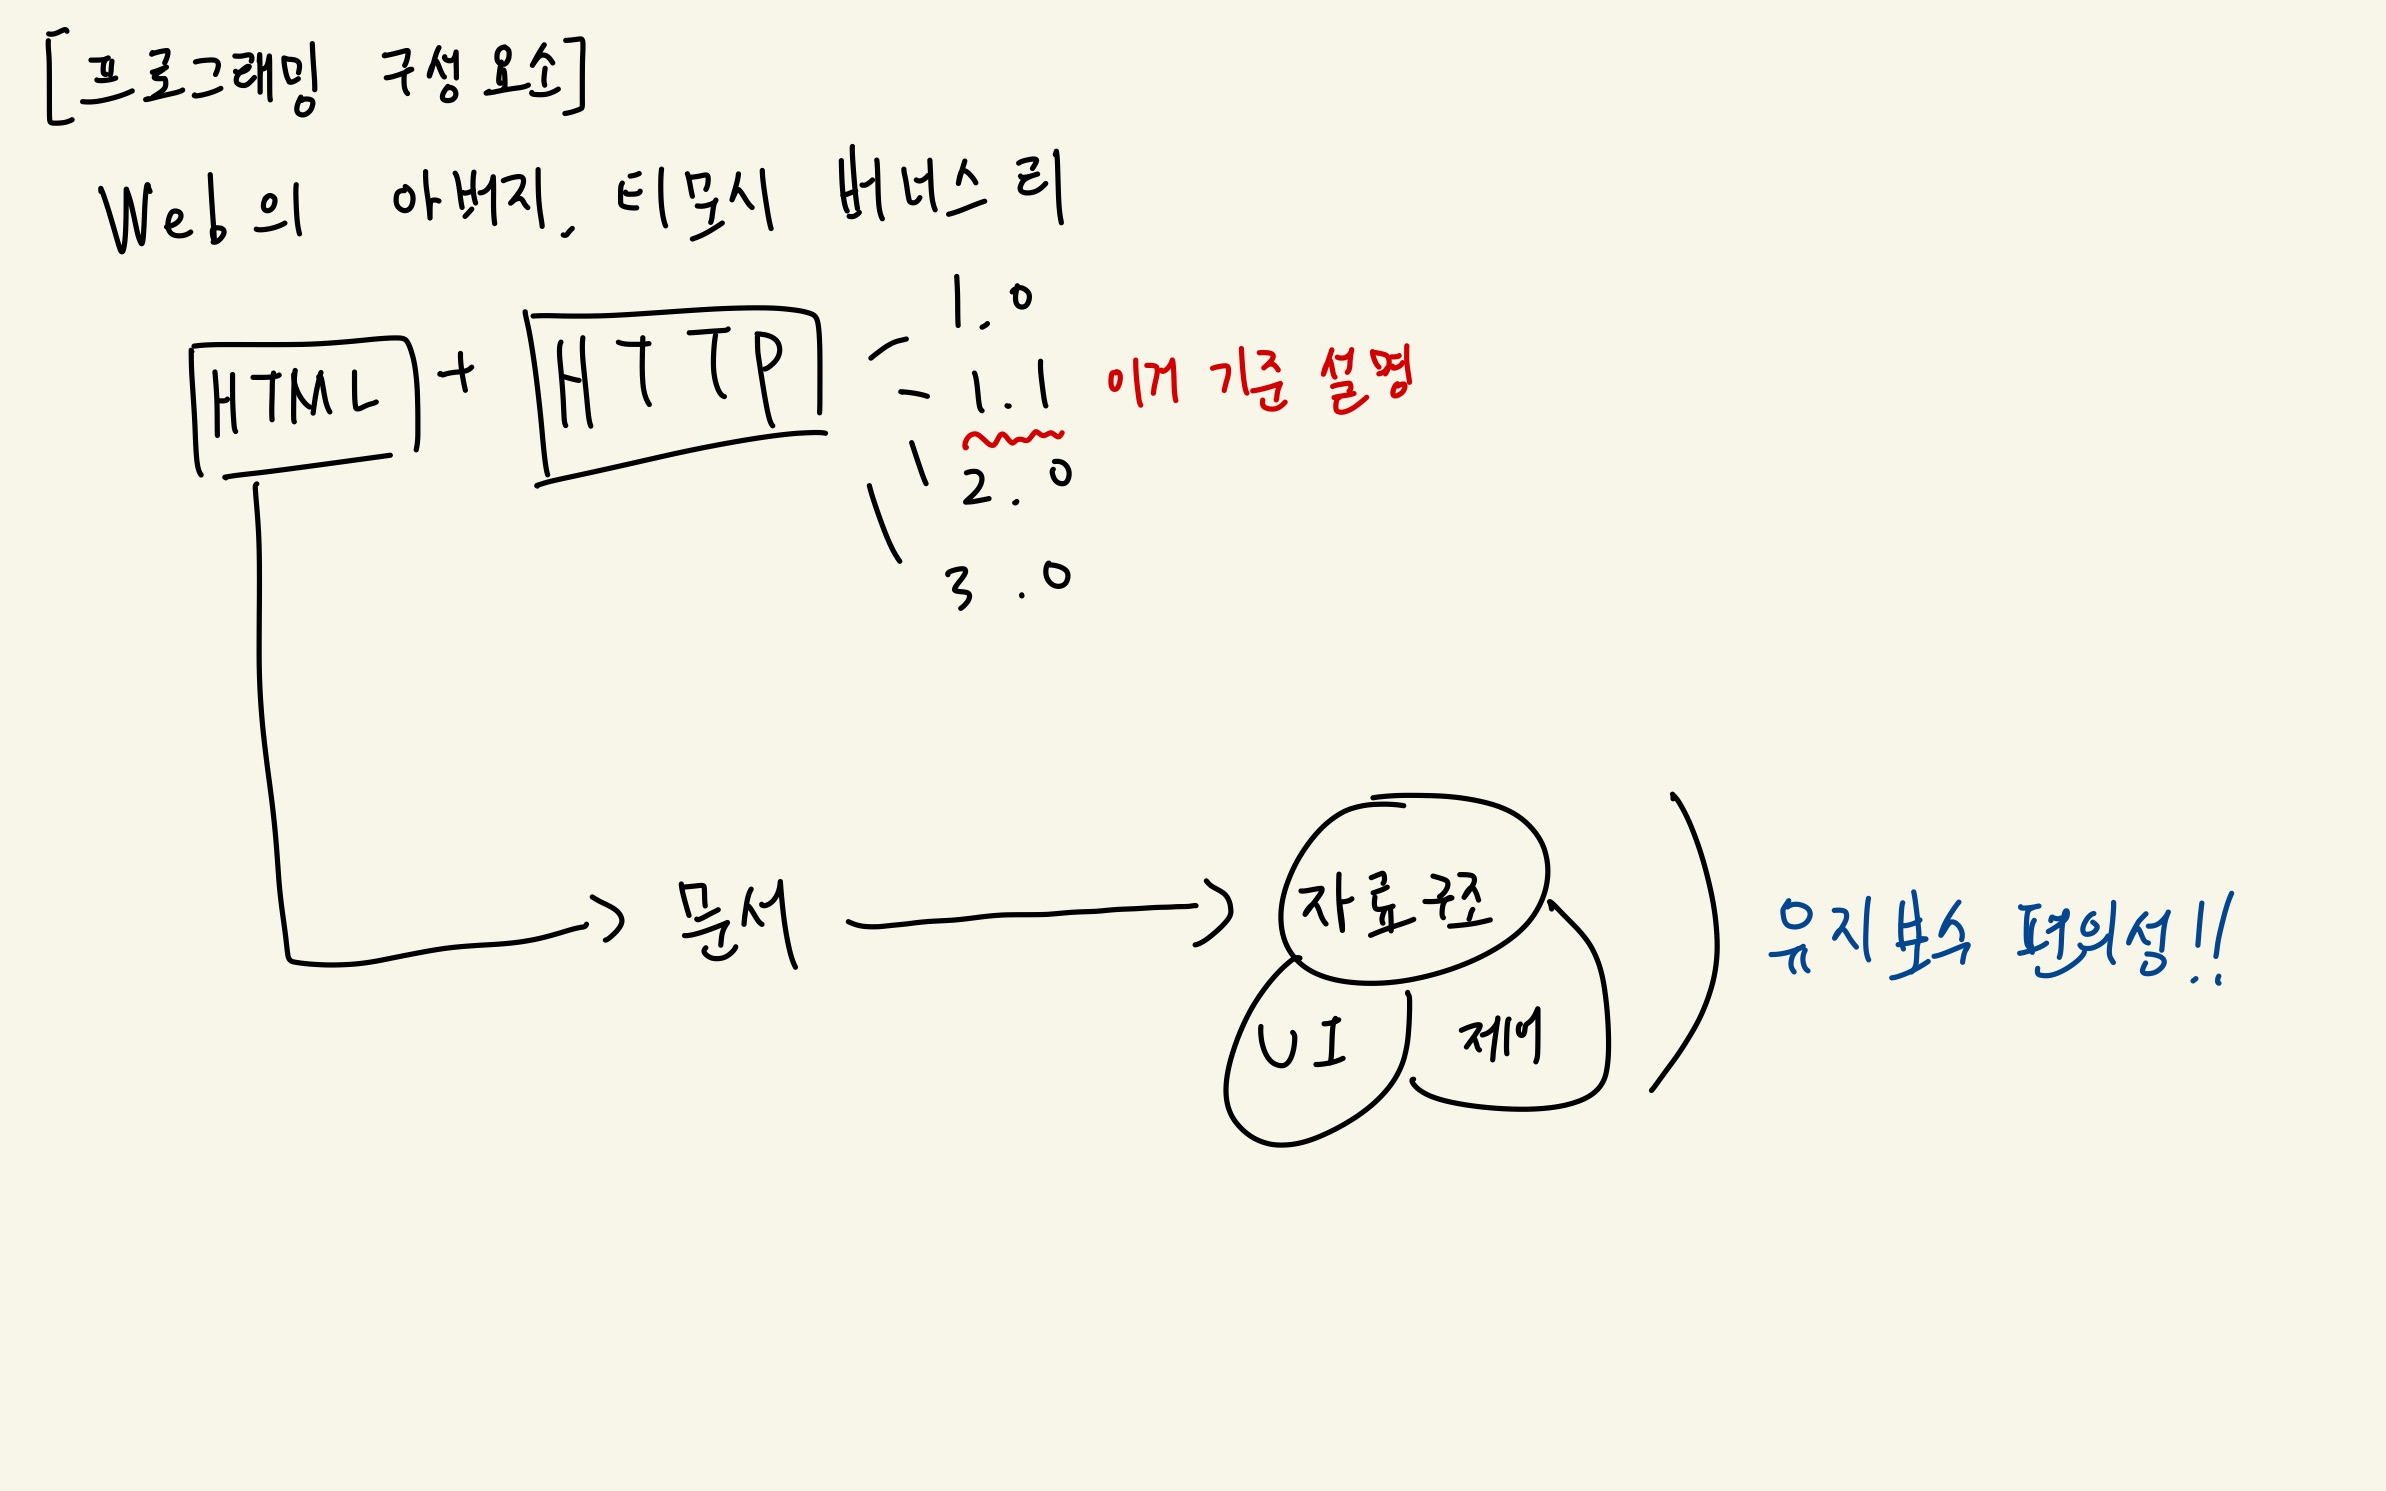 [프로그래밍 구성 요소]
Web의 아버지. 티모시 버너스 리
HTML + HTTP
1.0
1.1 이제 기준 설명
2.0
3.0
문서
자료구조
UI 제어
유지보수 편의성!!